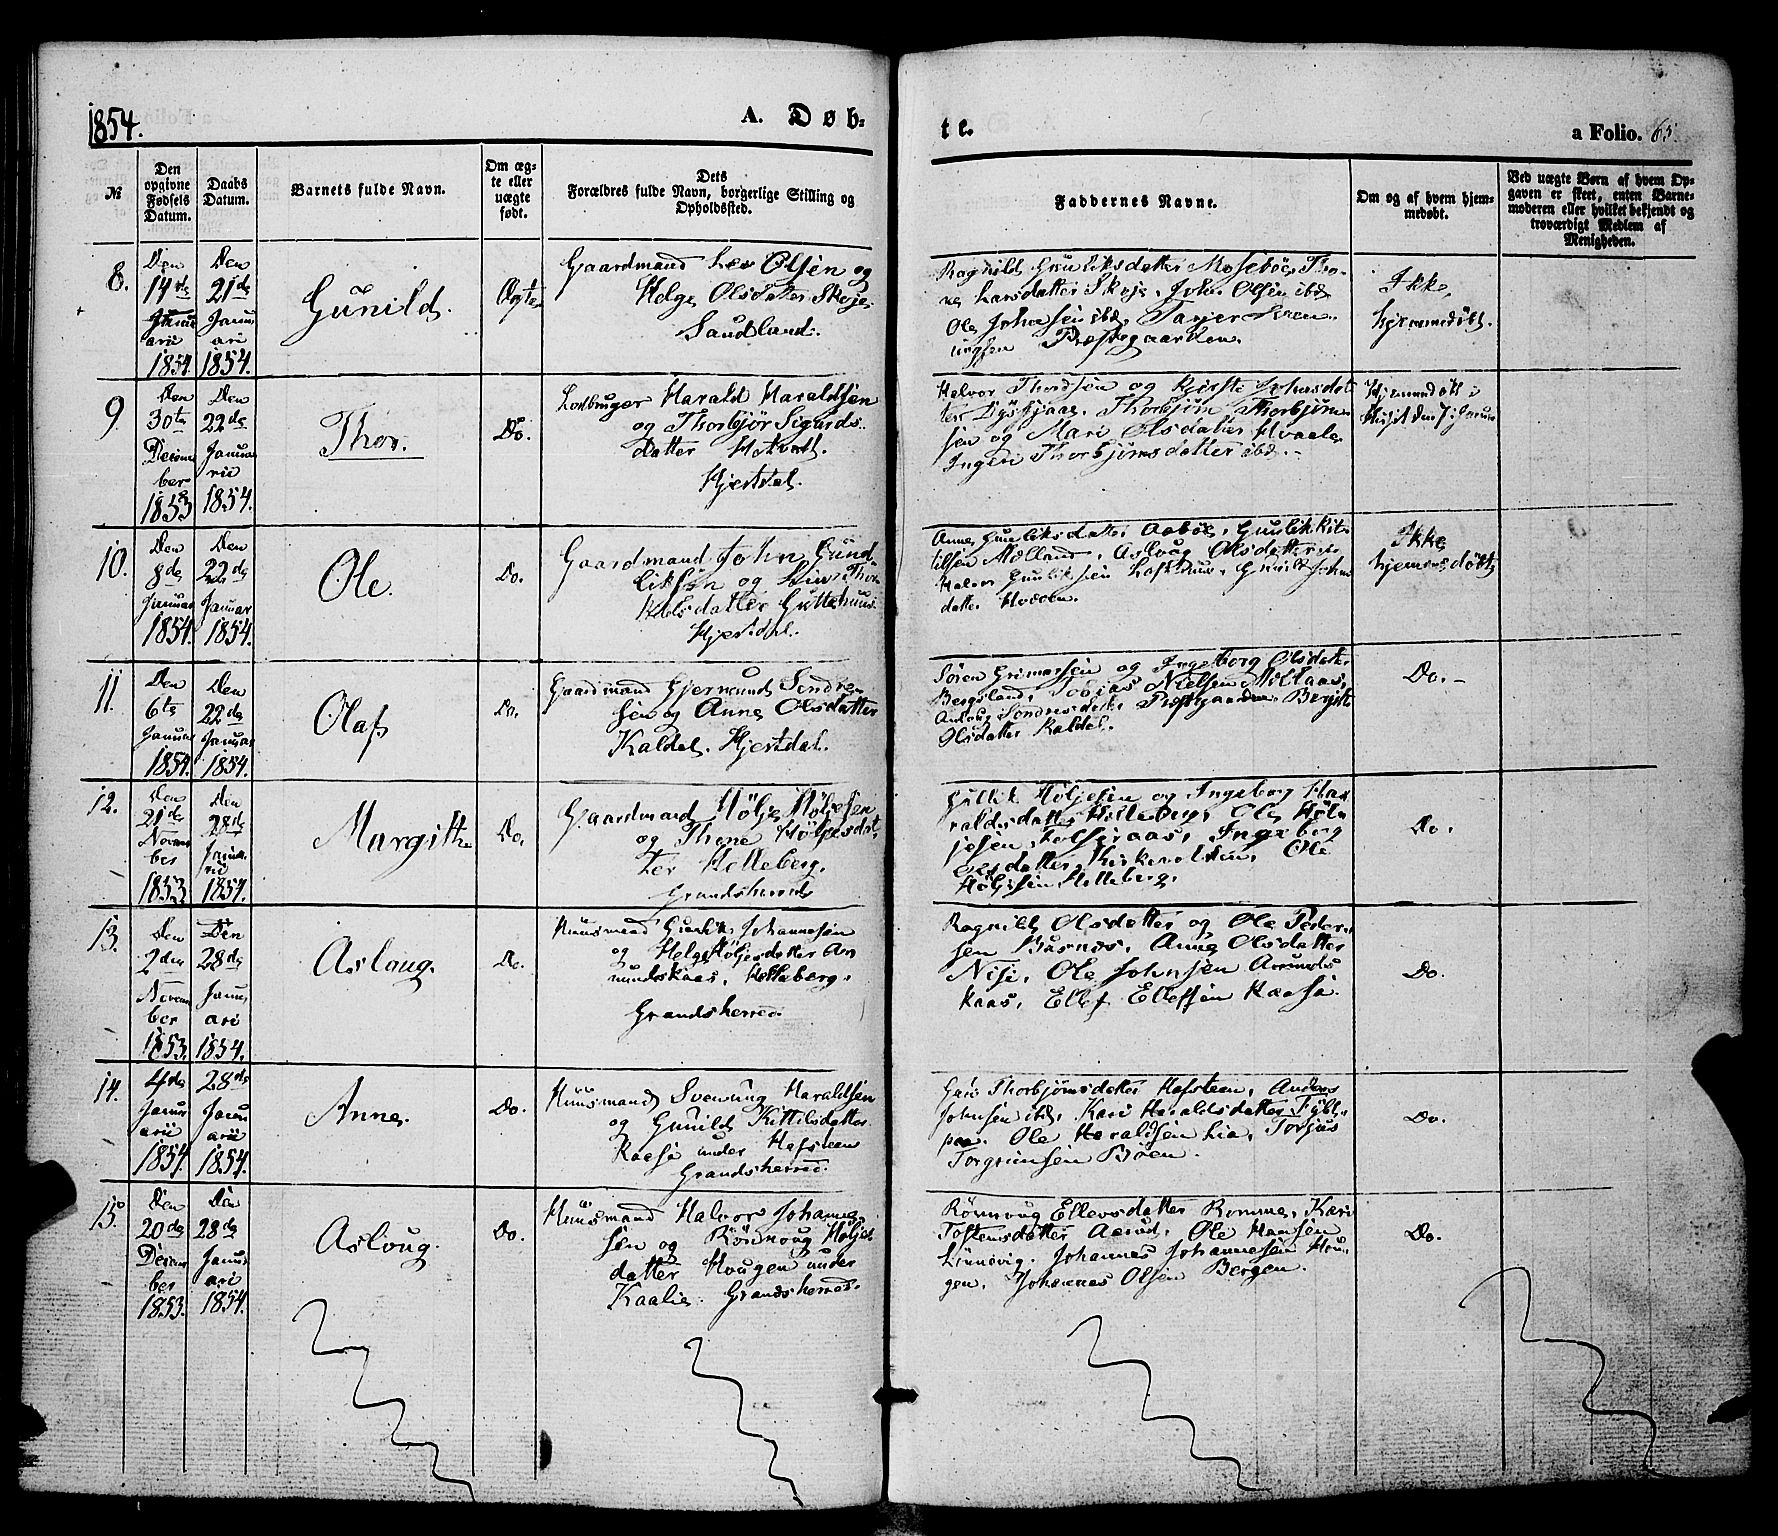 1854.
A. Døb-
te.
a Folio. 65.
№
Den opgivne Fødsels Datum.
Daabs Datum.
Barnets fulde Navn.
Om ægte eller uægte født.
Dets Forældres fulde Navn, borgerlige Stilling og Opholdssted.
Faddernes Navne.
Om og af hvem hjemmedøbt.
Ved uægte Børn af hvem Opgaven er skeet, enten Barnemoderen eller hvilket bekjendt og troværdigt Medlem af Menigheden.
8.
Den
14de
Janu
arii
1854.
Den
21de
Janu
ari
1854.
Gunild.
Ægte
Gaardmand Lev Olsen og
Helge Olsdatter Skoje
Saudland.
Ragnild Gunliksdatter Mosebøe, Tho-
ne Larsdatter Skoje, John Olsen ibd
Ole Johnsen ibd, Tarjer Sven
ungsen Præstegaarden.
Ikke
hjemmedøbt.
9
Den
30te
Decem
ber
1853
Den
22de
Janua
rii
1854.
Thor.
Do.
Lodbruger Harald Haraldsen
og Thorbjør Sigurds
datter
Hjertdal.
Halvor Thordsen og Kjersti Johnsdat
ter Dyskjaas, Thorbjørn Thorbjørn
sen og Mari Olsdatter Hvaale
Ingeri Thorbjørnsdatter ibd.
Hjemmedøbt
10.
Den
8de
Januar
1854.
Den
22de
Januar
1854.
Ole.
Do.
Gaardmand John Gund
liksen og Thor
kelsdatter Guttehuus
Hjertdal.
Anne Gunliksdatter Aabøe, Gunlik Kit-
tilsen Mælland, Aslaug Olsdatter
Halvor Gunliksen Lofthuus, Gunild
datter
Ikke
hjemmedøbt
11.
Den
6te
Januar
1854.
Den
22de
Januar
1854.
Olaf
Do.
Gaardmand Gjermund Sondre
sen og Anne Olsdatter
Kaldal. Hjertdal.
Sören Grimarsen og Ingeborg Olsdatter
Bergsland, Tobias Nielsen
Aslaug Sondresdatter Præstgaarden, Bergit
Olsdatter Kaldal.
Do.
12.
Den
21de
Novem
ber
1853
Den
28de
Janua
rii
1854.
Margith
Do.
Gaardmand Hölje Höljesen
og Thone Höljesdat-
ter Helleberg.
Grandsherred
Gullik Höljesen og Ingeborg Ha-
raldsdatter Helleberg, Ole Höl-
jesen Ingeborg
datter, Ole
Höljesen Helleberg.
Do.
13.
Den
2den
Novem
ber
1853.
Den
28de
Janu
ari
1854.
Aslaug.
Do.
Huusmand Gunlik Johannesen
og Helge Höljesdatter Am
mundskaas, Helleberg.
Grandsherred.
Ragnild Olsdatter og Ole Peder-
sen Busnæs, Anne Olsdatter
Nisi, Ole Johnsen Amunds
kaas, Ellef Ellefsen Kaasa.
Do.
14.
4de
Janu
arii
1854.
28de
Janu
arii
1854.
Anne.
Do.
Huusmand Svenung Haraldsen
og Gunild Kittilsdatter
Kaasa under Hafsteen
Grandsherred.
Thorbjørnsdatter Hafsteen, Anders
Johnsen ibd, Kari Haraldsdatter
Ole Haraldsen Lia, Torjus
Torgrimsen Böen.
Do.
15.
Den
20de
Decem
ber
1853.
Den
28de
Janu
ari
1854.
Asloug.
Do.
Huusmand Halvor Johanne
sen og Rönnoug Höljes
datter Hougen under
Kaalie. Grandsherred.
Rönnoug Ellevsdatter Romme, Kari
Tostensdatter Aarud, Ole Hansen
Johannes Johannesen Hou-
gen, Johannes Olsen Bergen.
Do.